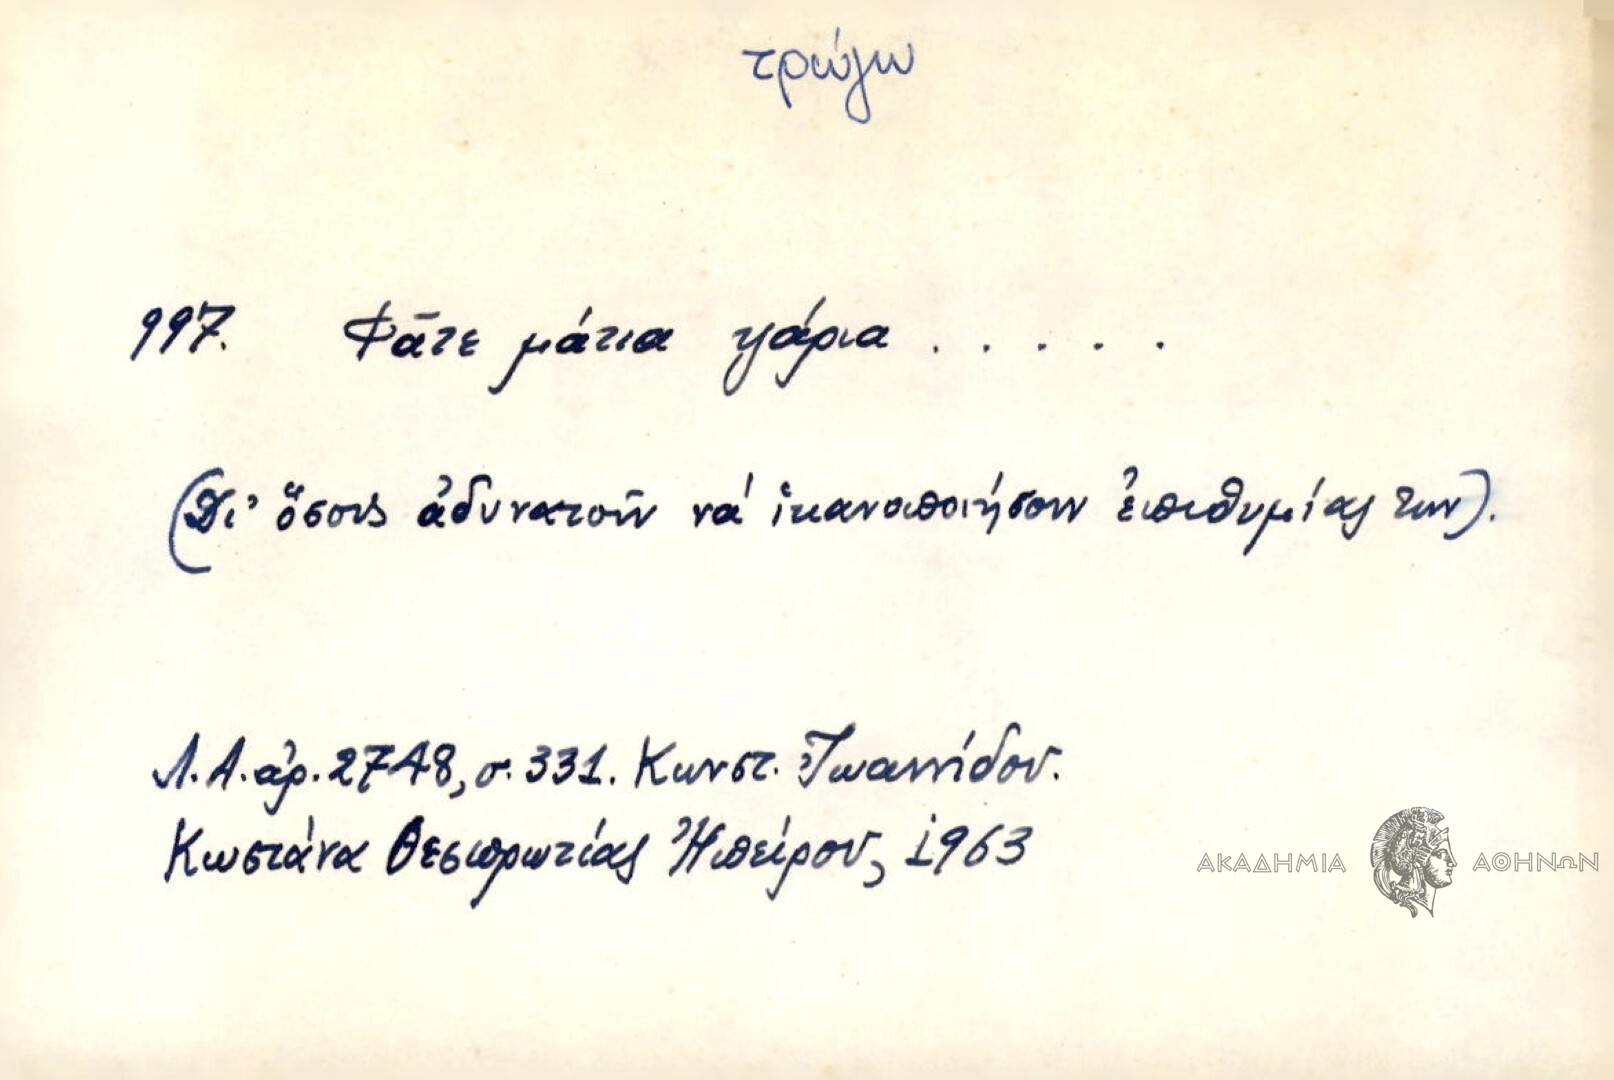 τρώγω
997. Φᾶτε μάτια ψάρια . . . . .
(Δι' ὅσους ἀδυνατοῦν νά ἱκανοποιήσουν ἐπιθυμίας των).
Λ.Α. ἀρ. 2748, σ. 331. Κωνστ. Ἰωαννίδου.
Κωστάνα Θεσπρωτίας Ἠπείρου, 1963
ΑΚΑΔΗΜΙΑ ΑΘΗΝΩΝ